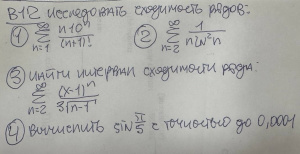 В12 исследовать сходимость рядов:
① ∞∑n=1 n·10ⁿ/(n+1)! ② ∞∑n=2 1/(n ln²n)
③ найти интервал сходимости ряда:
∞∑n=2 (x-1)ⁿ/(3ⁿ-1)
④ вычислить sin π/5 с точностью до 0,0001